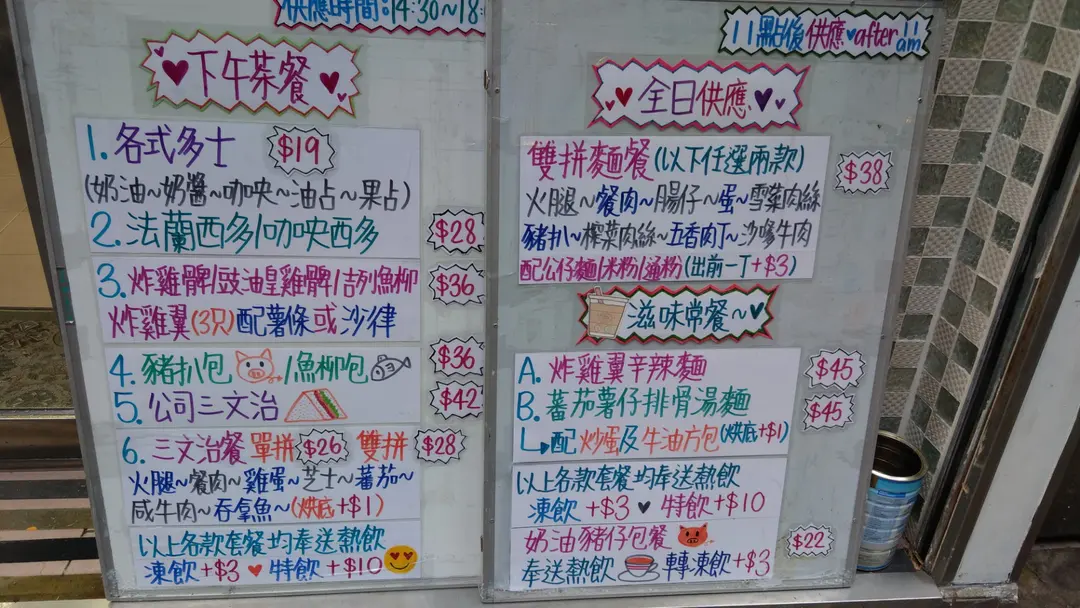 供應時間:14:30~18:
下午茶餐
1. 各式多士 $19
(奶油~奶醬~咖央~油占~果占)
2. 法蘭西多/咖央西多 $28
3. 炸雞髀/豉油皇雞髀/吉列魚柳 $36
炸雞翼(3只)配薯條或沙律
4. 豬扒包/魚柳包 $36
5. 公司三文治 $42
6. 三文治餐 單拼 $26 雙拼 $28
火腿~餐肉~雞蛋~芝士~蕃茄~
咸牛肉~吞拿魚~(烘底+$1)
以上各款套餐均奉送熱飲
凍飲+$3 ♥ 特飲+$10
11點後供應♥after 11am
全日供應
雙拼麵餐(以下任選兩款) $38
火腿~餐肉~腸仔~蛋~雪菜肉絲
豬扒~榨菜肉絲~五香肉丁~沙嗲牛肉
配公仔麵/米粉/通粉(出前一丁+$3)
滋味常餐~♥
A. 炸雞翼辛辣麵 $45
B. 蕃茄薯仔排骨湯麵 $45
配炒蛋及牛油方包(烘底+$1)
以上各款套餐均奉送熱飲
凍飲+$3 ♥ 特飲+$10
奶油豬仔包餐 $22
奉送熱飲 轉凍飲+$3